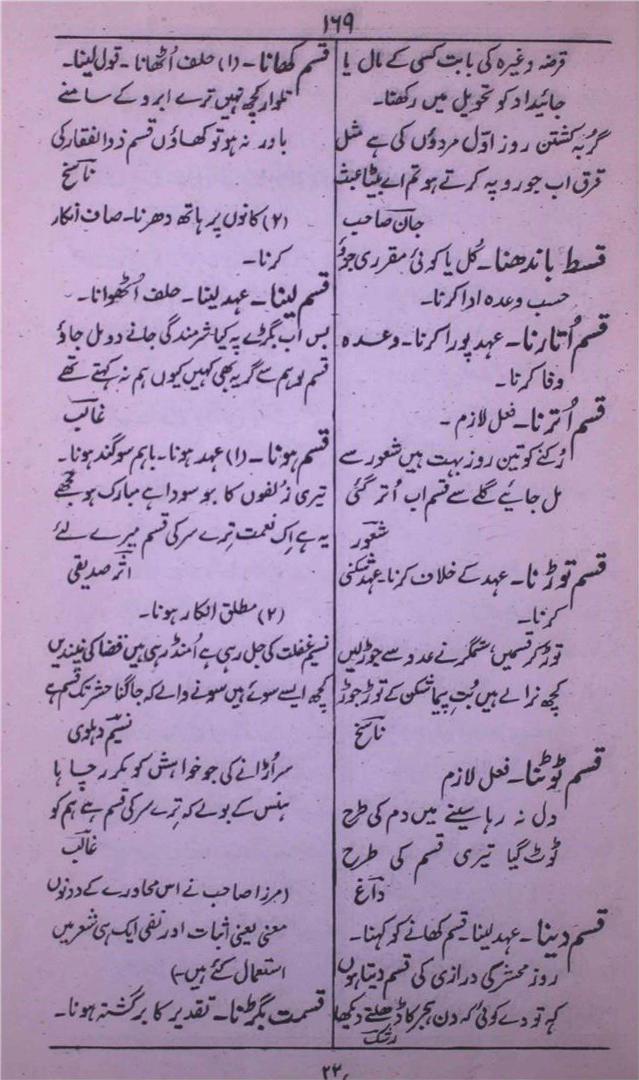 ۱۶۹
قرضہ وغیرہ کی بابت کسی کے مال یا
جائیداد کو تحویل میں رکھنا۔
گربہ کشتن روز اوّل مردوُں کی ہے مثل
قرق اب جورو پہ کرتے ہو تم اے بیٹا عبث
جان صاحب
قسط باندھنا۔ کُل یا کوئی مقرری جزؤ
حسب وعدہ ادا کرنا۔
قسم اُتارنا۔ عہد پورا کرنا۔ وعدہ
وفا کرنا۔
قسم اُترنا۔ فعل لازم۔
رُکنے کو تین روز بہت ہیں شعور سے
مل جائیے گلے سے قسم اب اُتر گئی
شعور
قسم توڑنا۔ عہد کے خلاف کرنا۔ عہد شکنی
کرنا۔
توڑ کر قسمیں ستمگر نے عدو سے جوڑ لیں
کچھ نرالے ہیں بُتِ پیماں شکن کے توڑ جوڑ
ناسخ
قسم ٹوٹنا۔ فعل لازم
دل نہ رہا سینے میں دم کی طرح
ٹوٹ گیا تیری قسم کی طرح
داغ
قسم دینا۔ عہد لینا۔ قسم کھانے کو کہنا۔
روز محشر کی درازی کی قسم دیتا ہوں
کہہ تو دے کوئی کہ دن ہجر کا ڈھلتے دیکھا
رشک
قسم کھانا۔ (۱) حلف اُٹھانا۔ قول لینا۔
تلوار کچھ نہیں ترے ابرو کے سامنے
باور نہ ہو تو کھاؤں قسم ذوالفقار کی
ناسخ
(۲) کانوں پر ہاتھ دھرنا۔ صاف انکار
کرنا۔
قسم لینا۔ عہد لینا۔ حلف اُٹھوانا۔
بس اب بگڑے پہ کیا شرمندگی جانے دو مل جاؤ
قسم لو ہم سے گر یہ بھی کہیں کیوں ہم نہ کہتے تھے
غالب
قسم ہونا۔ (۱) عہد ہونا۔ باہم سوگند ہونا۔
تیری زلفوں کا ہو سودا ہے مبارک ہو مجھے
یہ ہے اِک نعمت تِرے سر کی قسم میرے لئے
اثر صدیقی
(۲) مطلق انکار ہونا۔
نسیم غفلت کی چل رہی ہے اُمنڈ رہی ہیں قضا کی نیندیں
کچھ ایسے سوئے ہیں سونے والے کہ جاگنا حشر تک قسم ہے
نسیم دہلوی
سر اُڑانے کی جو خواہش کو مکرر چاہا
ہنس کے بولے کہ تِرے سر کی قسم ہے ہم کو
غالب
(مرزا صاحب نے اس محاورے کے دونوں
معنی یعنی اثبات اور نفی ایک ہی شعر میں
استعمال کئے ہیں۔)
قسمت بگڑنا۔ تقدیر کا برگشتہ ہونا۔
۲۲